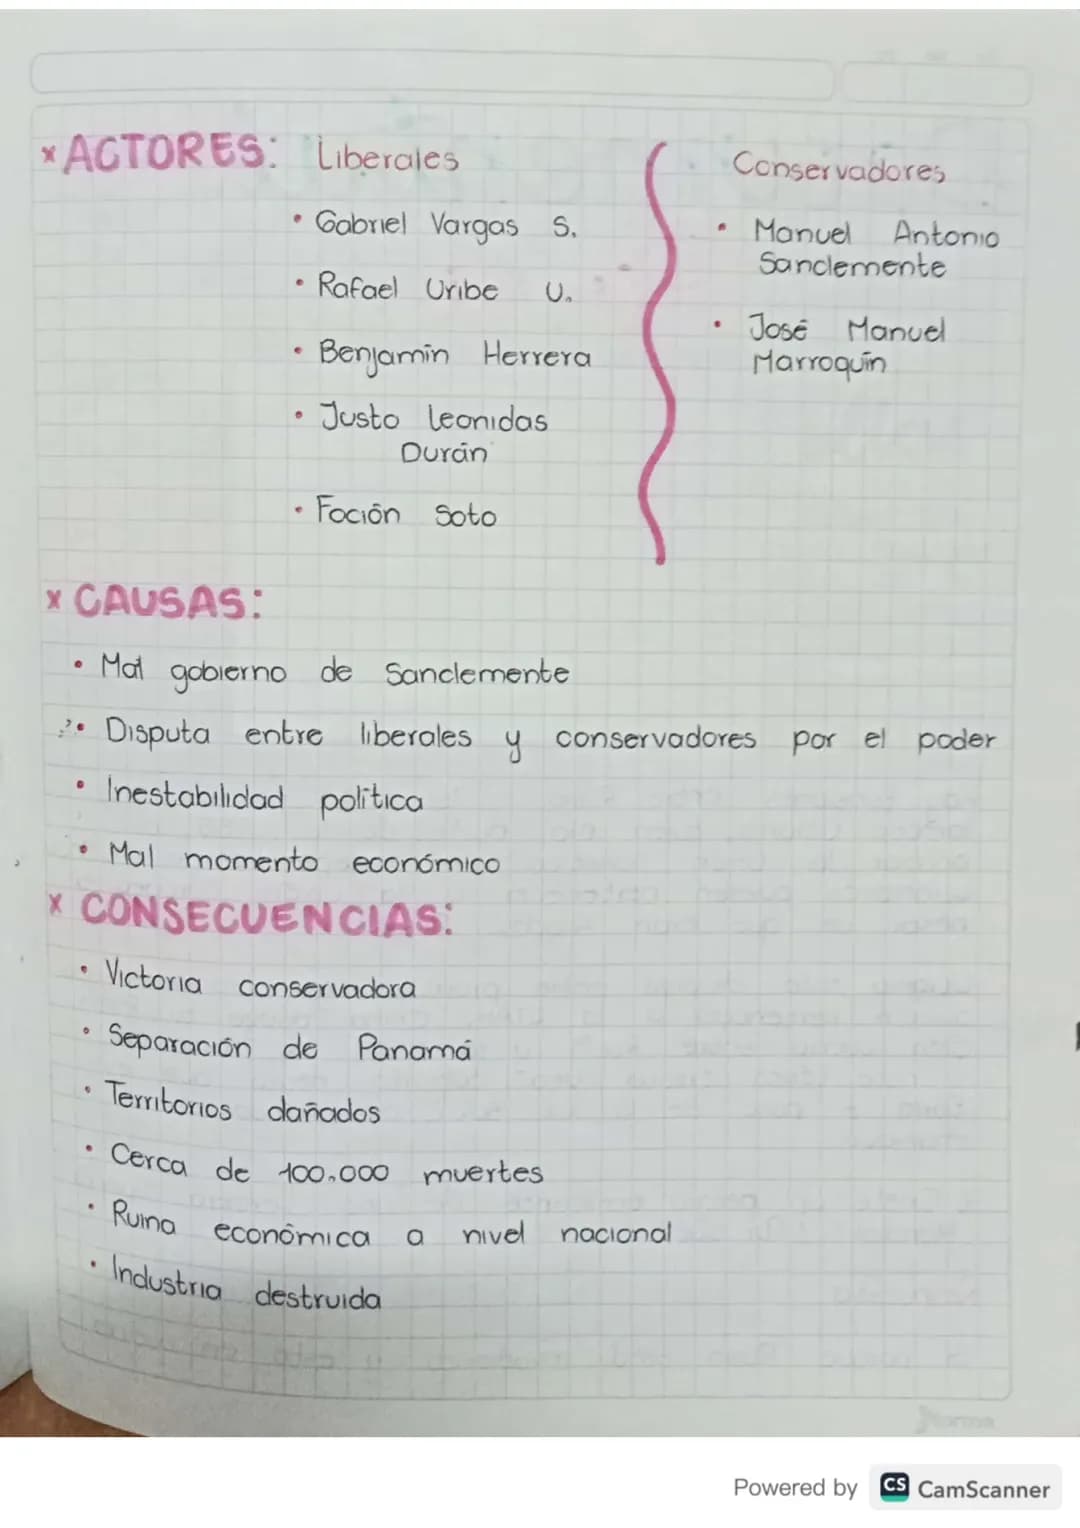 x ACTORES: Liberales
• Gabriel Vargas S.
• Rafael Uribe U.
• Benjamín Herrera
• Justo Leonidas
Durán
• Foción Soto
Conservadores
• Manuel Antonio
Sanclemente
• José Manuel
Marroquín
x CAUSAS:
• Mal gobierno de Sanclemente
• Disputa entre liberales y conservadores por el poder
• Inestabilidad política
• Mal momento económico
x CONSECUENCIAS:
• Victoria conservadora
• Separación de Panamá
• Territorios dañados
• Cerca de 100.000 muertes
• Ruina económica a nivel nacional
• Industria destruida
Norma
Powered by CS CamScanner